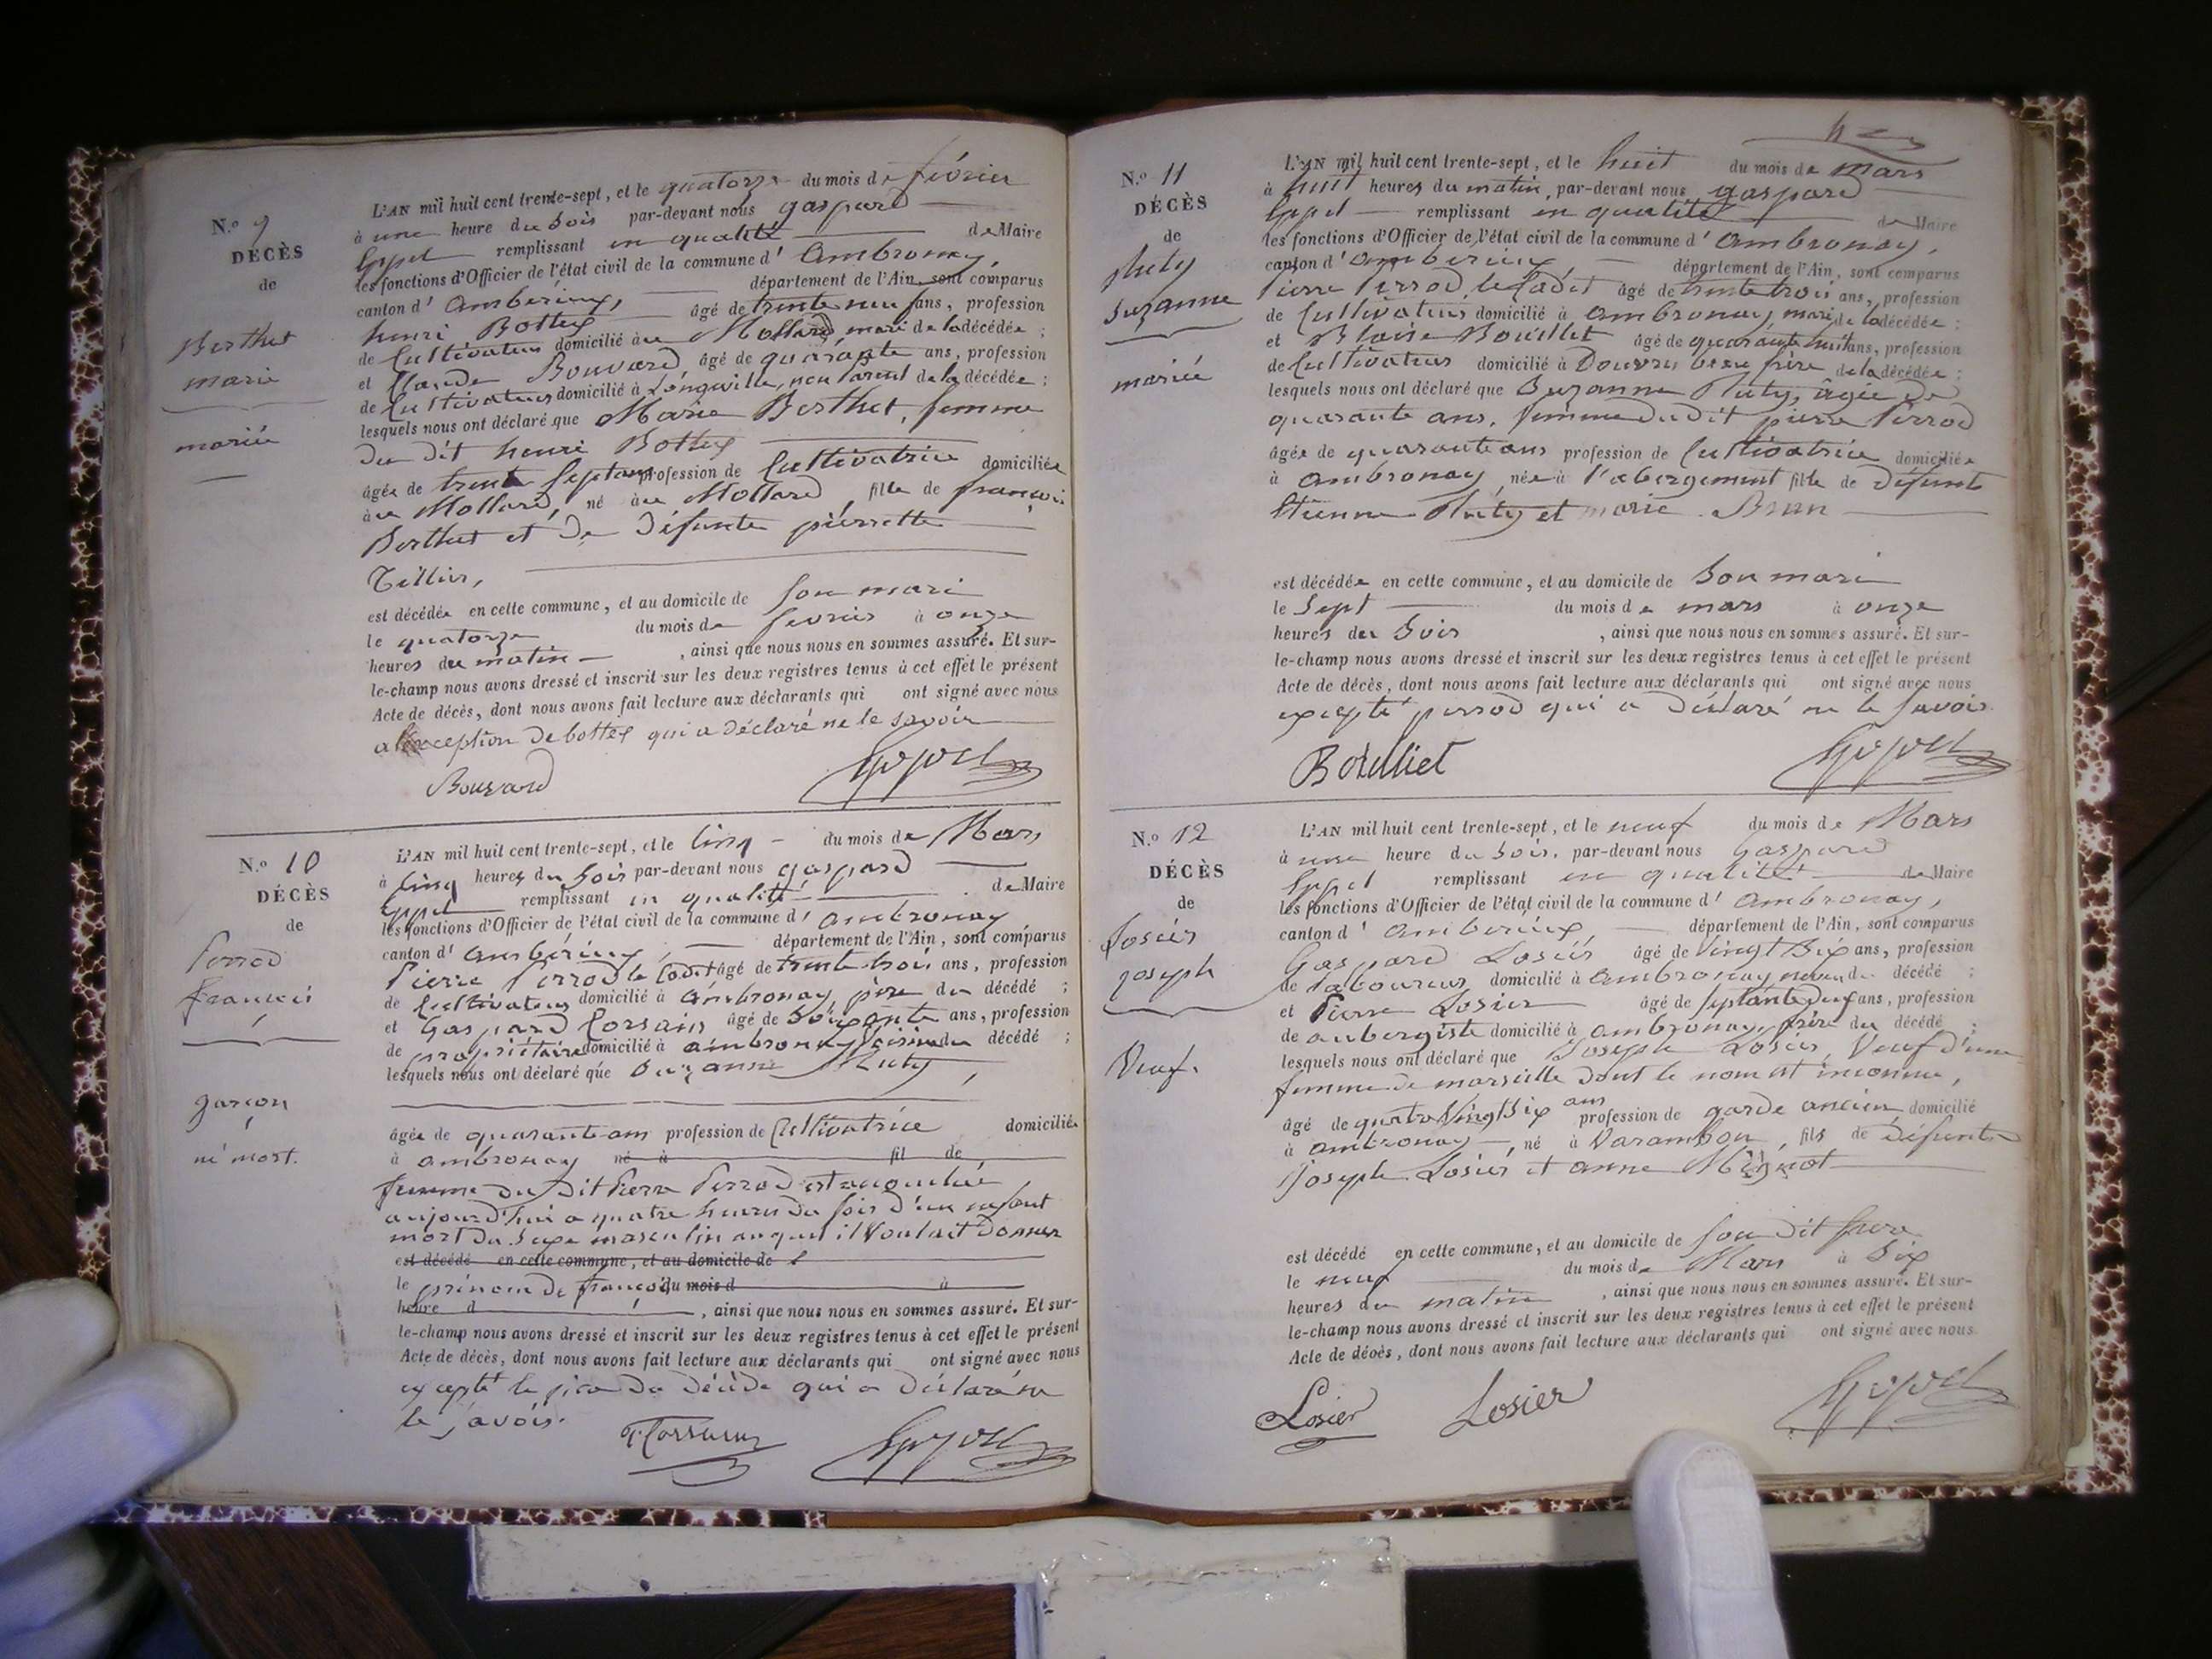 N.o 9
DÉCÈS
de
Berthet
marie
mariée
L'AN mil huit cent trente-sept, et le quatorze du mois de février
à une heure du soir par-devant nous gaspard
Eppel remplissant en qualité de Maire
les fonctions d'Officier de l'état civil de la commune d'Ambronay,
canton d'Ambérieux, département de l'Ain, sont comparus
henri Bottex âgé de trente neuf ans, profession
de Cultivateur domicilié au Mollard mari de la décédée ;
et Claude Bouvard âgé de quarante ans, profession
de Cultivateur domicilié à Longeville, non parent de la décédée ;
lesquels nous ont déclaré que Marie Berthet, femme
du dit henri Bottex
âgée de trente Sept ans profession de Cultivatrice domiciliée
au Mollard, né au Mollard, fille de françois
Berthet et de défunte pierrette
Tillier,
est décédée en cette commune, et au domicile de son mari
le quatorze du mois de fevrier à onze
heures du matin , ainsi que nous nous en sommes assuré. Et sur-
le-champ nous avons dressé et inscrit sur les deux registres tenus à cet effet le présent
Acte de décès, dont nous avons fait lecture aux déclarants qui ont signé avec nous
a l'exception de bottex qui a déclaré ne le savoir
Bouvard
N.o 10
DÉCÈS
de
Perrod
françois
garçon
né mort.
L'AN mil huit cent trente-sept, et le Cinq du mois de Mars
à Cinq heures du Soir par-devant nous gaspard
Eppel remplissant en qualité de Maire
les fonctions d'Officier de l'état civil de la commune d'ambronay
canton d'ambérieux, département de l'Ain, sont comparus
Pierre Perrod le Cadet âgé de trente trois ans, profession
de Cultivateur domicilié à Ambronay, père du décédé ;
et Gaspard Corsain âgé de Soixante ans, profession
de propriétaire domicilié à ambronay, voisin du décédé ;
lesquels nous ont déclaré que Suzanne Ruty,
âgée de quarante ans profession de Cultivatrice domiciliée
à ambronay né à fil de
femme du dit Pierre Perrod est accouchée
aujourd'hui a quatre heures du soir d'un enfant
mort du Sexe masculin auquel il Voulait Donner
est décédé en cette commune, et au domicile de
le prénom de françois du mois d à
heure d , ainsi que nous nous en sommes assuré. Et sur-
le-champ nous avons dressé et inscrit sur les deux registres tenus à cet effet le présent
Acte de décès, dont nous avons fait lecture aux déclarants qui ont signé avec nous
excepté le père du décédé qui a déclaré ne
le savoir.
N.o 11
DÉCÈS
de
Ruty
Suzanne
mariée
L'AN mil huit cent trente-sept, et le huit du mois de Mars
à huit heures du matin, par-devant nous gaspard
Eppel remplissant en qualité de Maire
les fonctions d'Officier de l'état civil de la commune d'Ambronay,
canton d'Ambérieux, département de l'Ain, sont comparus
Pierre Perrod, le Cadet âgé de trente trois ans, profession
de Cultivateur domicilié à Ambronay, mari de la décédée ;
et Blaise Bouillet âgé de quarante huit ans, profession
de Cultivateur domicilié à Douvres beau frère de la décédée ;
lesquels nous ont déclaré que Suzanne Ruty, âgée de
quarante ans, femme du dit pierre Perrod
âgée de quarante ans profession de Cultivatrice domiciliée
à Ambronay, née à l'abergement fille de défunts
Etienne Ruty et marie Brun
est décédée en cette commune, et au domicile de Son mari
le Sept du mois de mars à onze
heures du Soir , ainsi que nous nous en sommes assuré. Et sur-
le-champ nous avons dressé et inscrit sur les deux registres tenus à cet effet le présent
Acte de décès, dont nous avons fait lecture aux déclarants qui ont signé avec nous
excepté perrod qui a déclaré ne le savoir.
Bouilliet
N.o 12
DÉCÈS
de
Losier
joseph
Veuf.
L'AN mil huit cent trente-sept, et le neuf du mois de Mars
à une heure du Soir, par-devant nous Gaspard
Eppel remplissant en qualité de Maire
les fonctions d'Officier de l'état civil de la commune d'Ambronay,
canton d'Ambérieux, département de l'Ain, sont comparus
Gaspard Losier âgé de Vingt Six ans, profession
de laboureur domicilié à Ambronay neveu du décédé ;
et Pierre Losier âgé de septante deux ans, profession
de aubergiste domicilié à ambronay, frère du décédé ;
lesquels nous ont déclaré que Joseph Losier, Veuf d'une
femme de marseille dont le nom est inconnu,
âgé de quatre Vingt Six ans profession de garde ancien domicilié
à Ambronay, né à Varambon, fils de défunts
Joseph Losier et anne Mignot
est décédé en cette commune, et au domicile de son dit frère
le neuf du mois de Mars à Six
heures du matin , ainsi que nous nous en sommes assuré. Et sur-
le-champ nous avons dressé et inscrit sur les deux registres tenus à cet effet le présent
Acte de décès, dont nous avons fait lecture aux déclarants qui ont signé avec nous.
Losier Losier